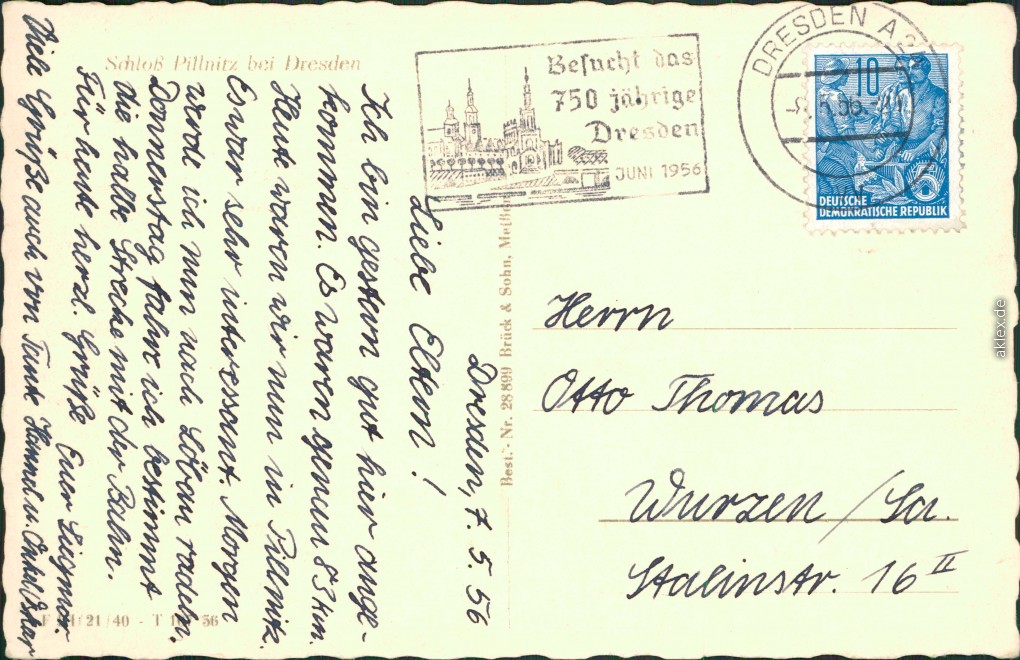 Schloß Pillnitz bei Dresden
Dresden, 7. 5. 56
Liebe Eltern!
Ich bin gestern gut hier ange-
kommen. Es waren genau 83 km.
Heute waren wir nun in Pillnitz.
Es war sehr interessant. Morgen
werde ich nun nach Löbau radeln.
Donnerstag fahre ich bestimmt
die halbe Strecke mit der Bahn.
Für heute herzl. Grüße Euer Siegmar.
Viele Grüße auch von Tante Hannel u. Onkel
Best.-Nr. 28 899 Brück & Sohn, Meißen
Besucht das
750 jährige
Dresden
JUNI 1956
DRESDEN A
10
5
DEUTSCHE
DEMOKRATISCHE REPUBLIK
Herrn
Otto Thomas
Wurzen / Sa.
Stalinstr. 16 II
21/40 - T 56
aklex.de